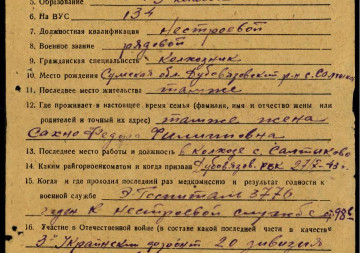 5. Образование
6. На ВУС 134
7. Должностная квалификация Нестроевой
8. Военное звание рядовой
9. Гражданская специальность Колхозник
10. Место рождения Сумская обл. Дубовязовский р-н с.
11. Последнее место жительства там же
12. Где проживает в настоящее время семья (фамилия, имя и отчество жены или
родителей и точный их адрес) там же жена
Сахно Филиповна
13. Последнее место работы и должность в колхозе с.
14. Каким райгорвоенкоматом и когда призван Дубовязов. РВК
15. Когда и где проходил последний раз медкомиссию и результат годности к
военной службе Э. Госпиталь 3776
годен к нестроевой службе
16. Участие в Отечественной войне (в составе какой последней части и в качестве
3й Украинский фронт 20 дивизия